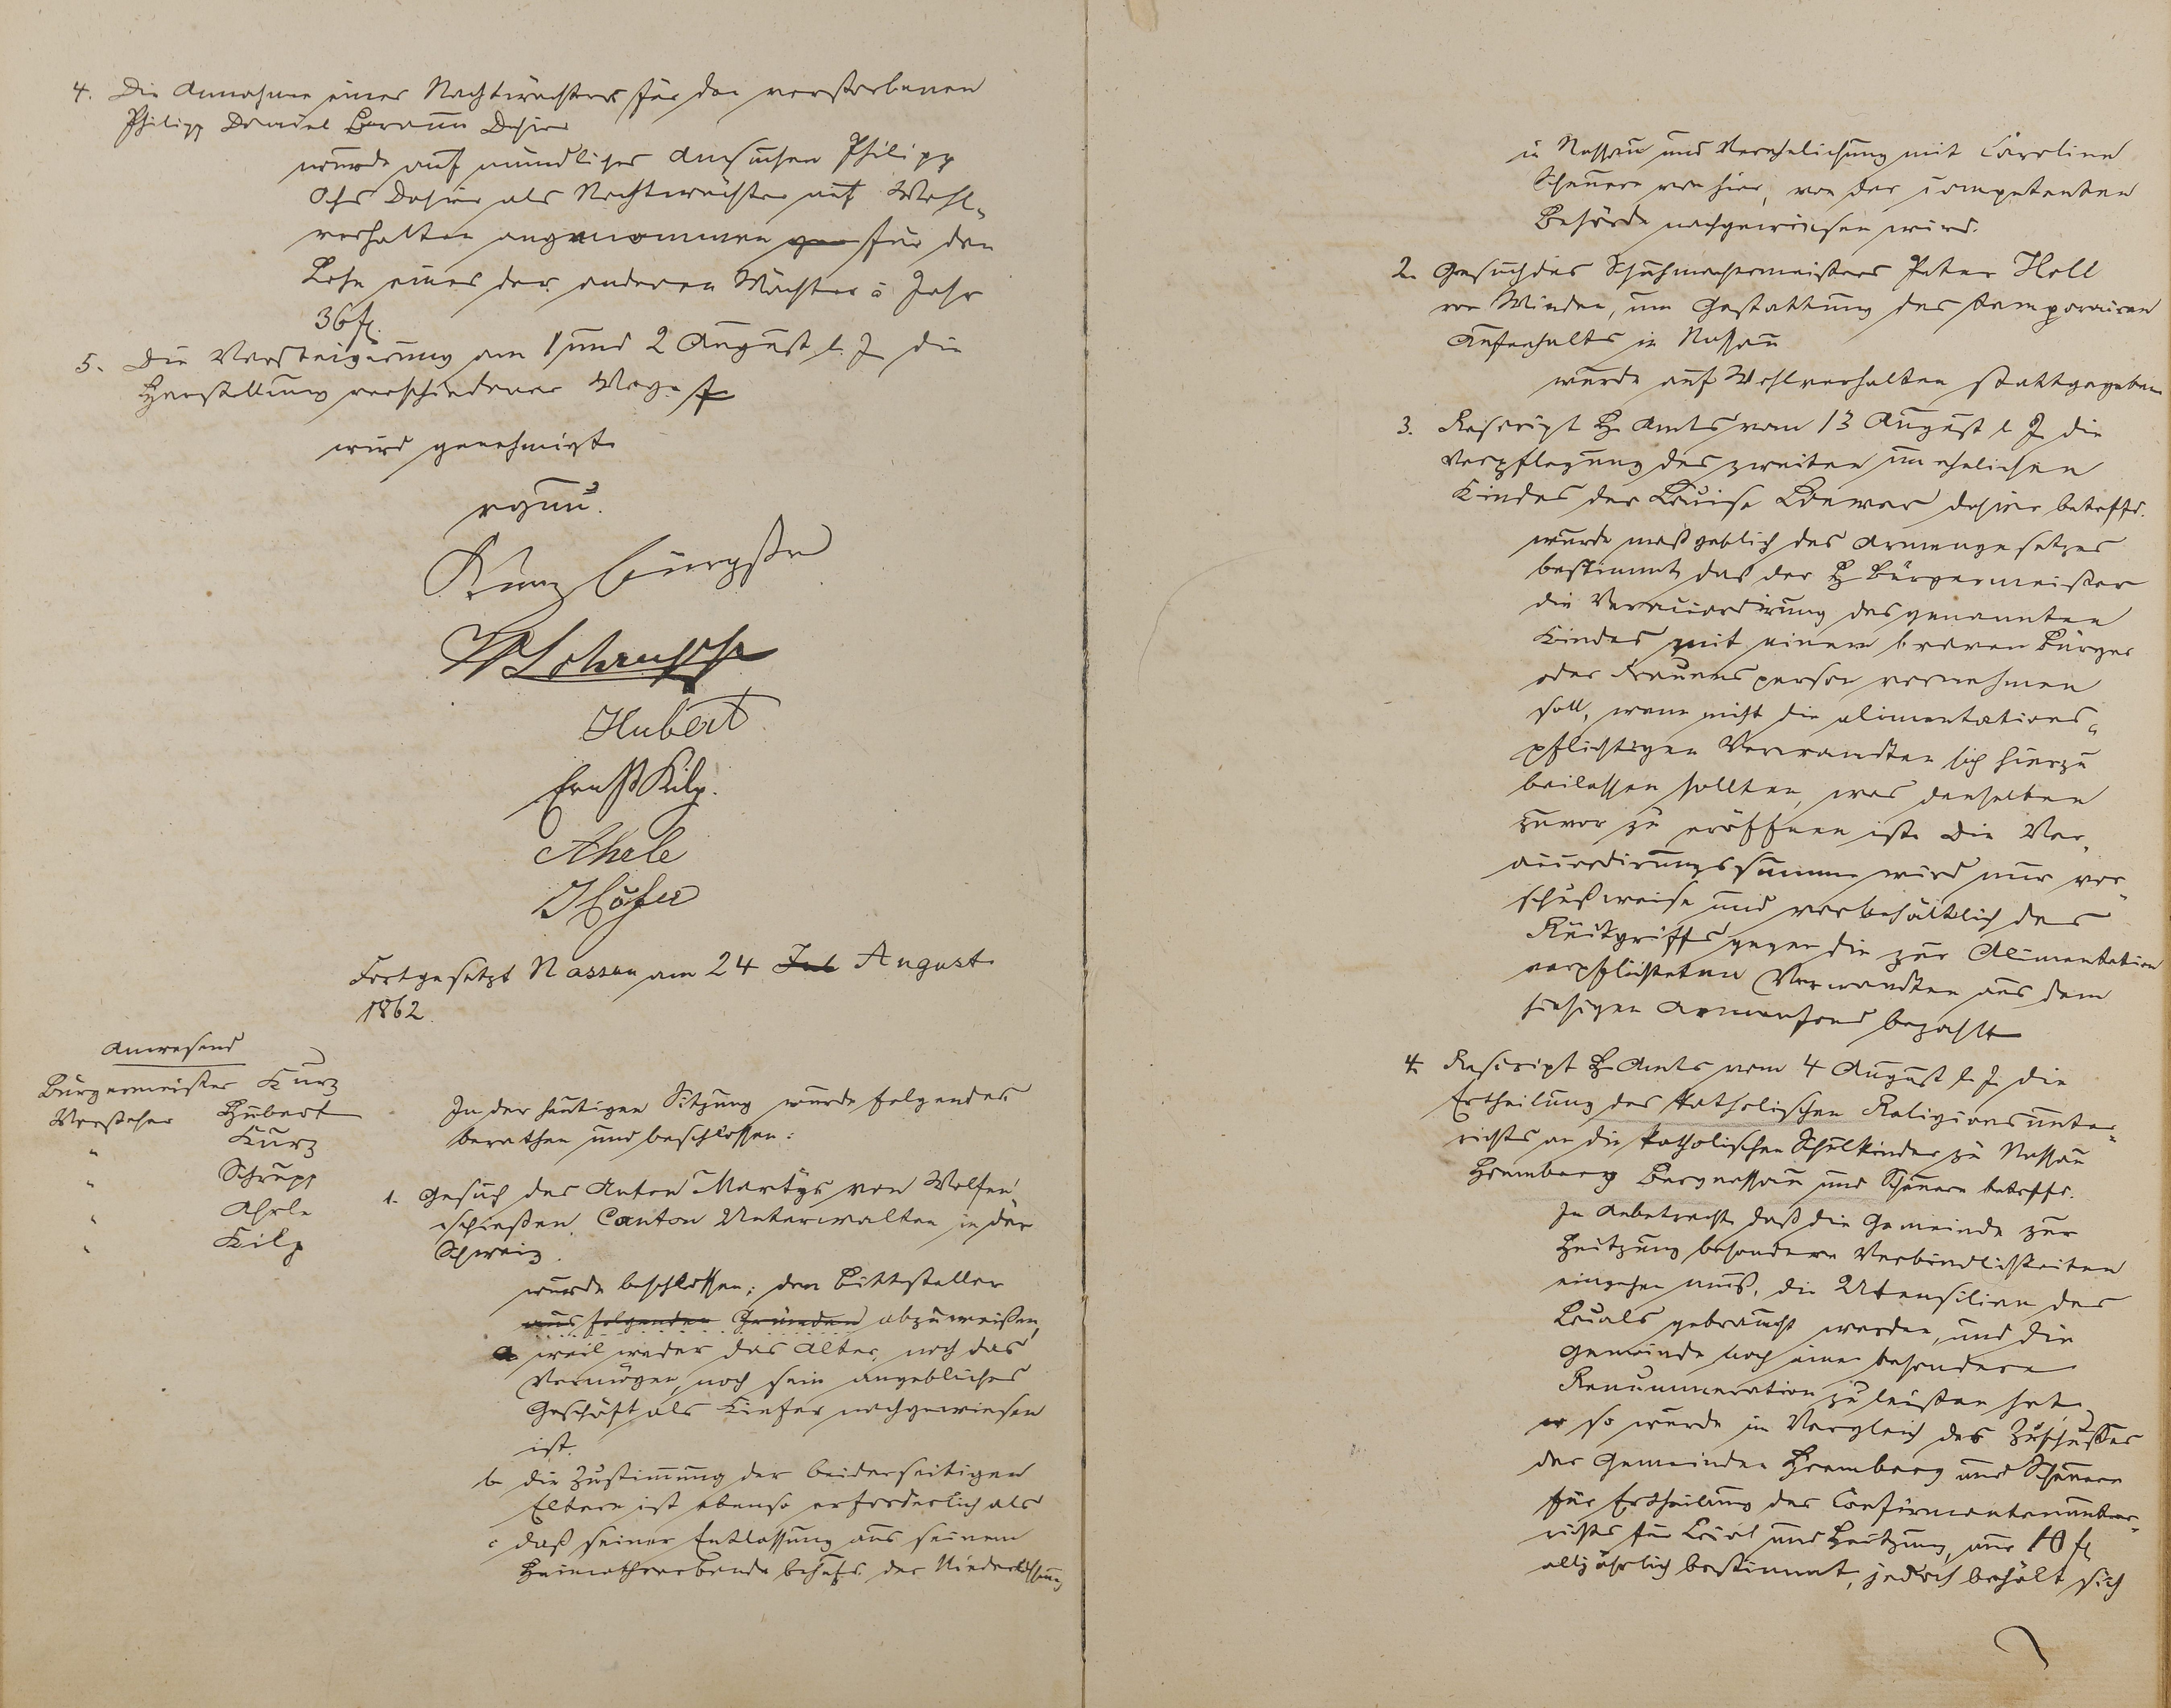 4. Die Annahme eines Nachtwächters für den verstorbenen
Philipp Daniel Braun dahier
wurde auf mündliches Ansuchen Philipp
Ochs dahier als Nachtwächter auf Wohl-
verhalten angenommen für den
Lohn eines der anderen Wächter à Jahr
36 fl.
5. Die Versteigerung am 1 und 2 August l. J. die
Herstellung verschiedener Wege
wird genehmigt.
Kurz Bürgstr
Hubert
Ernst Kilp.
Ahrle
Höfer
Fortgesetzt Nassau am 24 Jul August
1862.
Anwesend
Bürgermeister Kurz
Vorsteher Hubert
" Kurz
" Schrupp
" Ahrle
" Kilp
In der heutigen Sitzung wurde folgendes
berathen und beschlossen:
1. Gesuch des Anton Martys von Wolfen-
schießen, Canton Unterwalten in der
Schweiz.
wurde beschlossen: den Bittsteller
aus folgenden Gründen abzuweisen,
a weil weder das Alter, noch das
Vermögen, noch sein angebliches
Geschäft als Kiefer nachgewiesen
ist.
b die Zustimmung der beiderseitigen
Eltern ist ebenso erforderlich als
c daß seiner Entlassung aus seinem
Heimathverbande behufs der Niederlassung
in Nassau und Verehelichung mit Caroline
Scheuern von hier, von der competenten
Behörde nachgewiesen wird.
2. Gesuch des Schuhmachermeisters Peter Holl
von Winden, um Gestattung des temporairen
Aufenhalts in Nassau
wurde auf Wohlverhalten stattgegeben
3. Rescript H. Amts vom 13 August l. J. die
Verpflegung des zweiten unehelichen
Kindes der Louise dahier betrffd.
wurde maßgeblich des Armengesetzes
bestimmt, daß der H. Bürgermeister
die Veraccordirung des genannten
Kindes mit einem braven Bürger
oder Frauensperson vornehmen
soll, wenn nicht die alimentations-
pflichtigen Verwandten sich hierzu
beilassen sollten, was denselben
zuvor zu eröffnen ist. Die Ver-
accordirungssumme wird nur vor-
schußweise und vorbehältlich des
Rückgriffs gegen die zur Alimentation
verpflichteten Verwandten aus dem
hiesigen Armenfond bezahlt
4. Rescript H. Amts vom 4 August l. J. die
Ertheilung des katholischen Religionsunter-
richts an die katholischen Schulkinder zu Nassau
Hömberg Bergnassau und Scheuern betrffd.
In Anbetracht daß die Gemeinde zur
Heitzung besondere Verbindlichkeiten
eingehen muß, die Utensilien des
Locals gebraucht werden, und die
Gemeinde noch eine besondere
Renummeration zu leisten hat,
so wurde in Vergleich des Zuschusses
der Gemeinden Hömberg und Scheuern
für Ertheilung des Confirmantenunter-
richts für Local und Heitzung, nur 10 fl
alljährlich bestimmt, jedoch behält sich